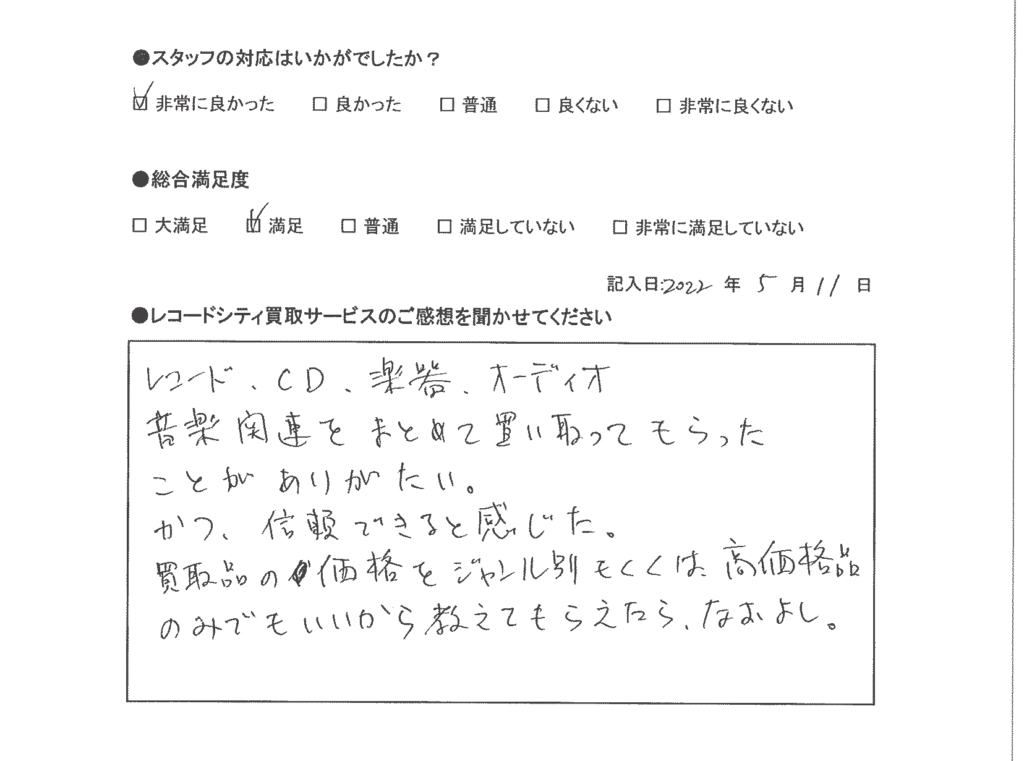 ●スタッフの対応はいかがでしたか？
☑ 非常に良かった ☐ 良かった ☐ 普通 ☐ 良くない ☐ 非常に良くない
●総合満足度
☐ 大満足 ☑ 満足 ☐ 普通 ☐ 満足していない ☐ 非常に満足していない
記入日:2022 年 5 月 11 日
●レコードシティ買取サービスのご感想を聞かせてください
レコード、CD、楽器、オーディオ
音楽関連をまとめて買い取ってもらった
ことがありがたい。
かつ、信頼できると感じた。
買取品の価格をジャンル別もしくは、高価格品
のみでもいいから教えてもらえたら、なおよし。